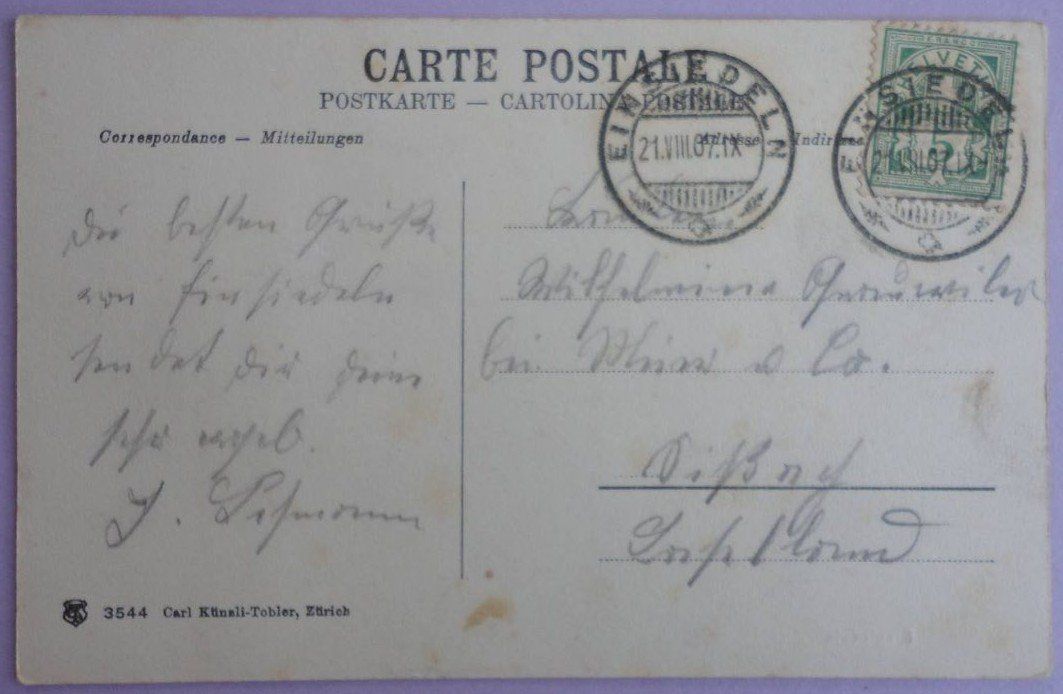 CARTE POSTALE
POSTKARTE — CARTOLINA POSTALE
Correspondance — Mitteilungen
Adresse Indirizzo
EINSIEDELN
21.VIII.07.IX
EINSIEDELN
21.VIII.07.IX
HELVETIA
5
Die besten Grüße
von Einsiedeln
sendet Dir Deine
sehr ergeb.
J.
Wilhelmina
bei Meier u Co.
Sißach
Baselland
3544 Carl Künzli-Tobler, Zürich